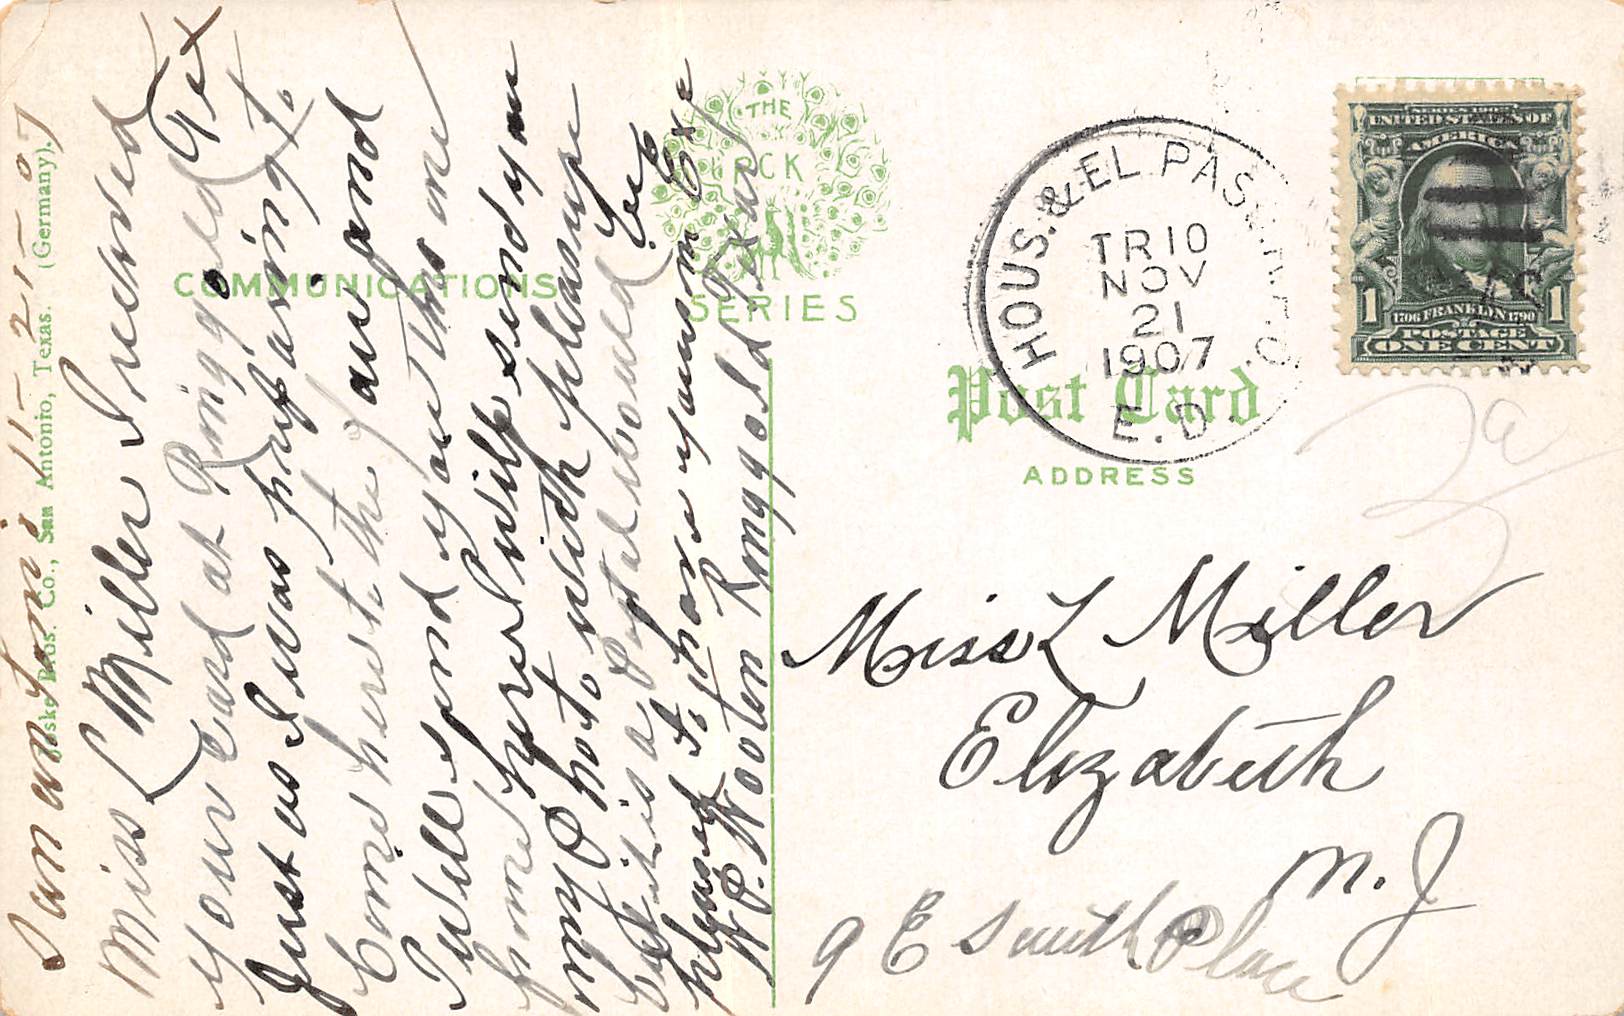 San antonio 11-21-07
Miss L Miller I received
your Card at Ringgold Tex
Just as I was prepairing to
Come here to the
I will send you this one
from here I will send you
my Photo with pleasure
but it is a Postal would be
pleased to have yours in Ex
W.P. Wooten Ringgold Texas
Joske Bros. Co., San Antonio, Texas. (Germany).
COMMUNICATIONS
THE
P CK
SERIES
HOUS. & EL PASO R.P.O.
TR 10
NOV
21
1907
E.D.
SERIES 1902
UNITED STATES OF
AMERICA
1 1706 FRANKLIN 1790 1
POSTAGE
ONE CENT
Post Card
ADDRESS
Miss L Miller
Elizabeth
N. J
9 E Smith Place